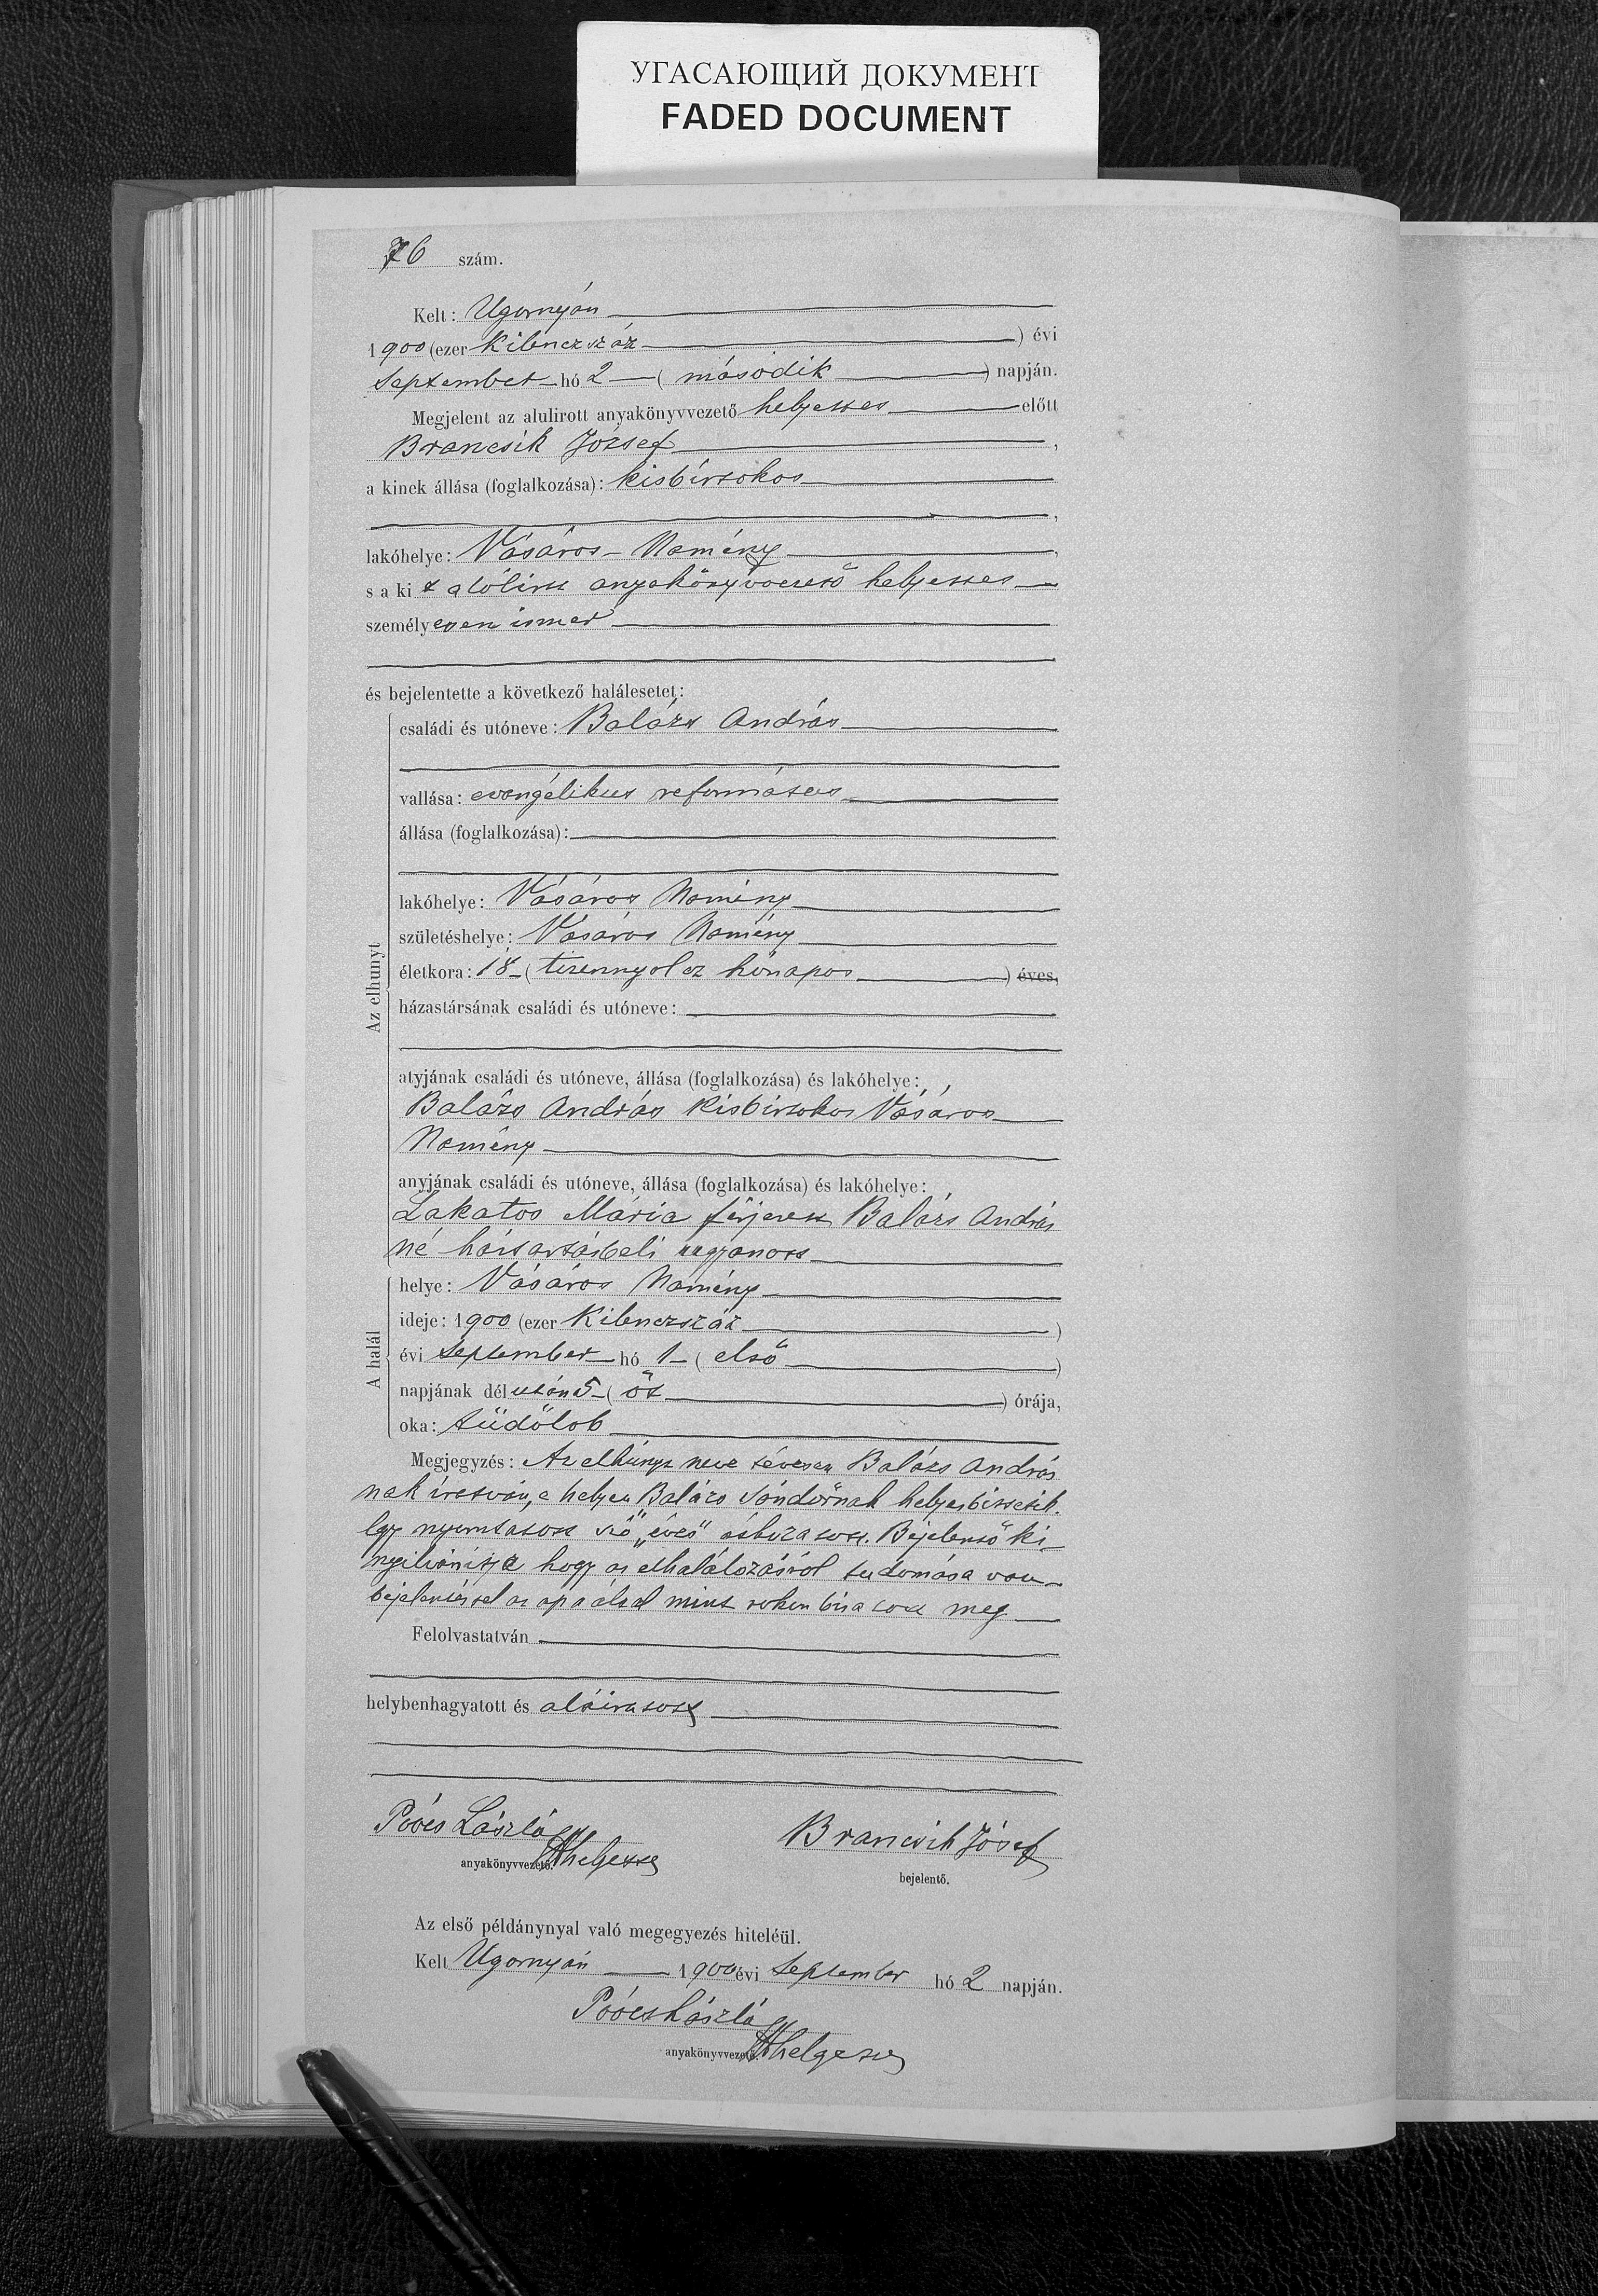 УГАСАЮЩИЙ ДОКУМЕНТ
FADED DOCUMENT
76 szám.
Kelt: Ugornyán
1900 (ezer Kilenczszáz ) évi
September hó 2 ( második ) napján.
Megjelent az alulirott anyakönyvvezető helyettes előtt
Brancsik József ,
a kinek állása (foglalkozása): kisbirtokos
,
lakóhelye: Vásáros-Namény ,
s a ki t alólirt anyakönyvvezető helyettes
személyesen ismer
és bejelentette a következő halálesetet:
családi és utóneve: Balázs András
vallása: evangélikus református
állása (foglalkozása):
lakóhelye: Vásáros Namény
születéshelye: Vásáros Namény
életkora: 18 ( tizennyolcz hónapos ) éves,
házastársának családi és utóneve:
Az elhunyt
atyjának családi és utóneve, állása (foglalkozása) és lakóhelye:
Balázs András kisbirtokos Vásáros
Namény
anyjának családi és utóneve, állása (foglalkozása) és lakóhelye:
Lakatos Mária férjezett Balázs András
né háztartásbeli ugyanott
A halál
helye: Vásáros Namény
ideje: 1900 (ezer Kilenczszáz )
évi September hó 1 ( első )
napjának délután 5 ( öt ) órája,
oka: tüdőlob
Megjegyzés: Az elhúnyt neve tévesen Balázs András
nak iratván, e helyen Balázs Sándornak helyesbittetik.
Egy nyomtatott szó „éves" áthúzatott. Bejelentő ki
nyilvánitja hogy az elhalálozásról tudomása van
bejelentéssel az apa által mint rokon bizatott meg
Felolvastatván
helybenhagyatott és aláiratott
Poócs László
anyakönyvvezető. helyettes
Brancsik József
bejelentő.
Az első példánynyal való megegyezés hiteléül.
Kelt Ugornyán 1900 évi September hó 2 napján.
Poócs László
anyakönyvvezető. helyettes